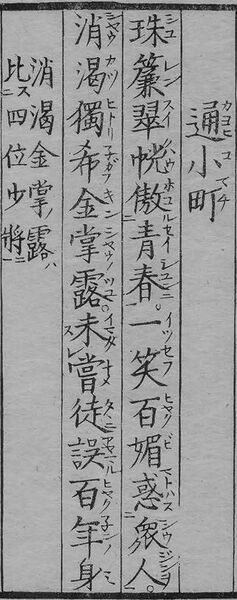 通小町
珠簾翠幌傲青春。一笑百媚惑衆人。
消渇獨希金掌露。未嘗徒誤百年身
消渇金掌ノ露ハ
比ス四位少將ニ